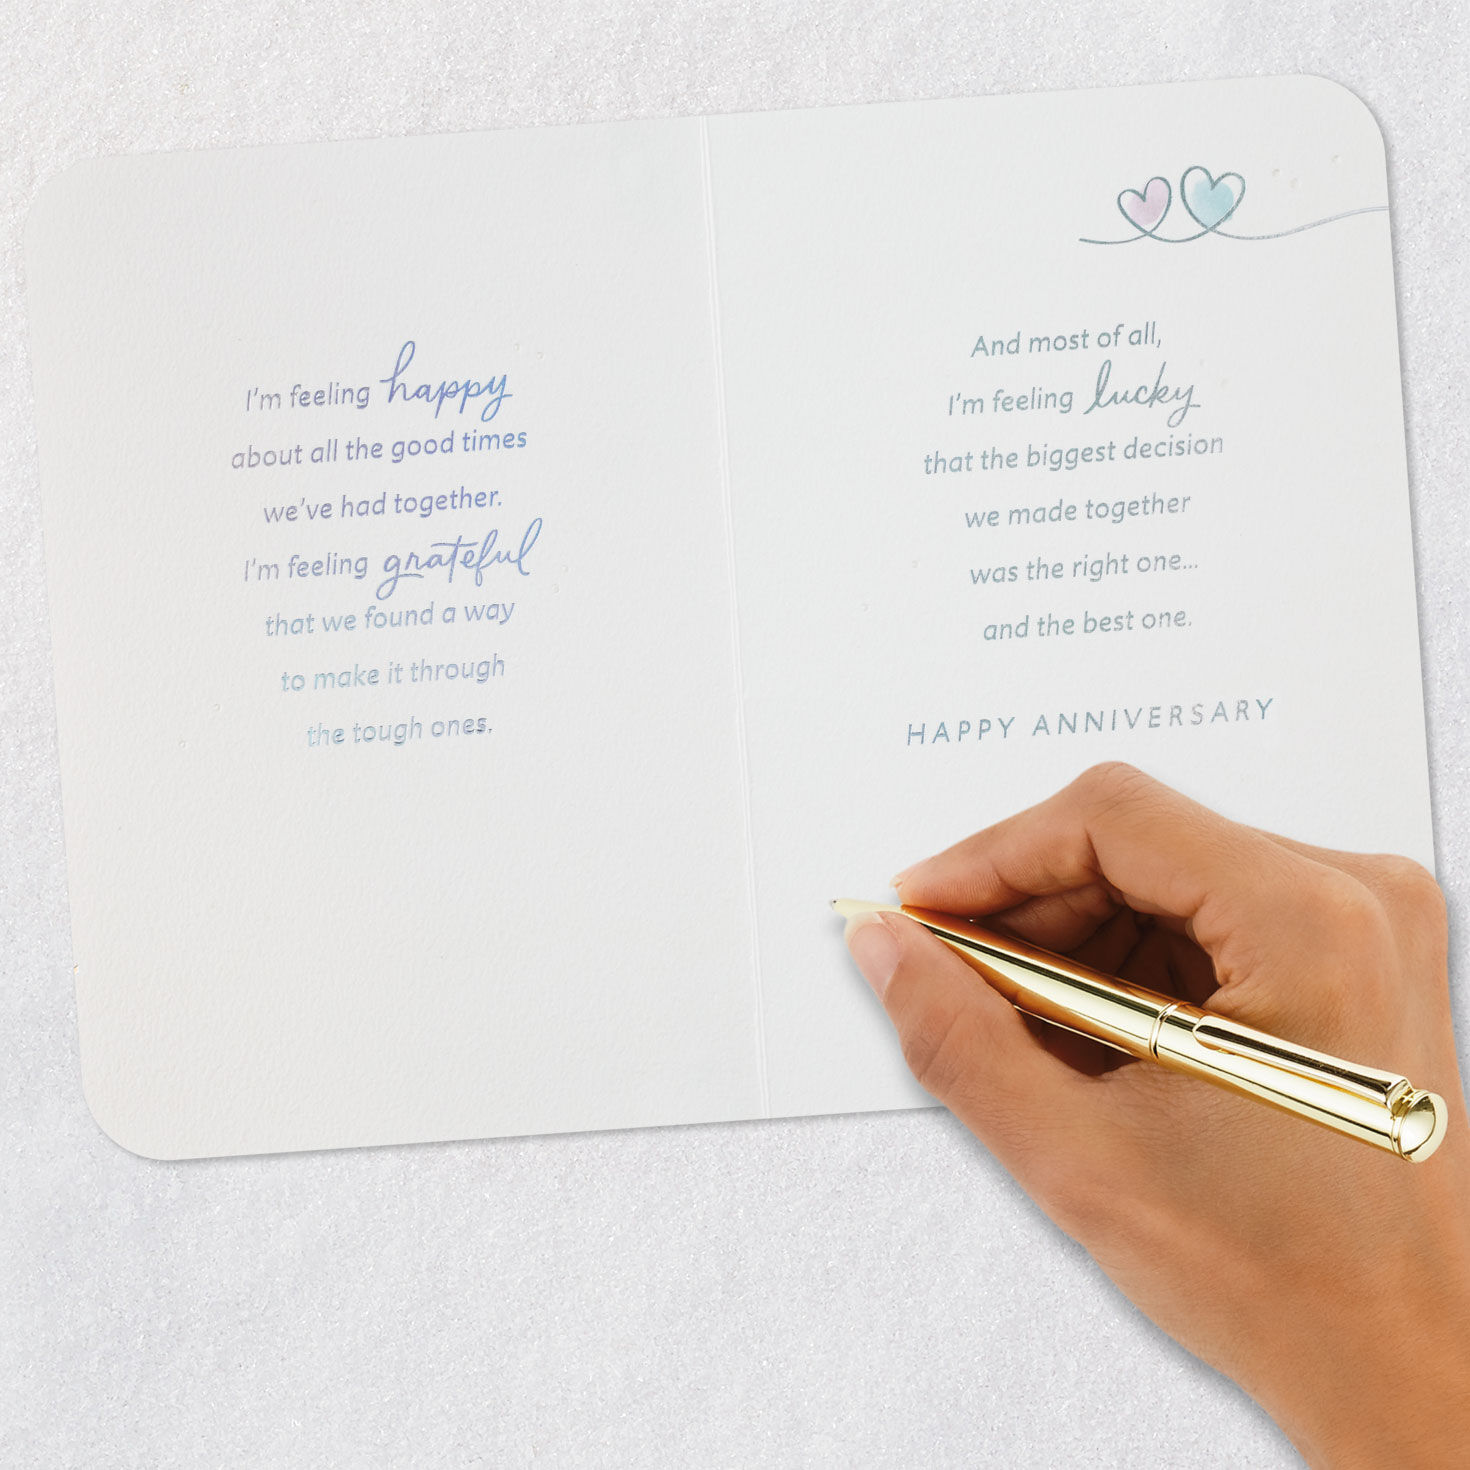 I'm feeling happy
about all the good times
we've had together.
I'm feeling grateful
that we found a way
to make it through
the tough ones.
And most of all,
I'm feeling lucky
that the biggest decision
we made together
was the right one...
and the best one.
HAPPY ANNIVERSARY